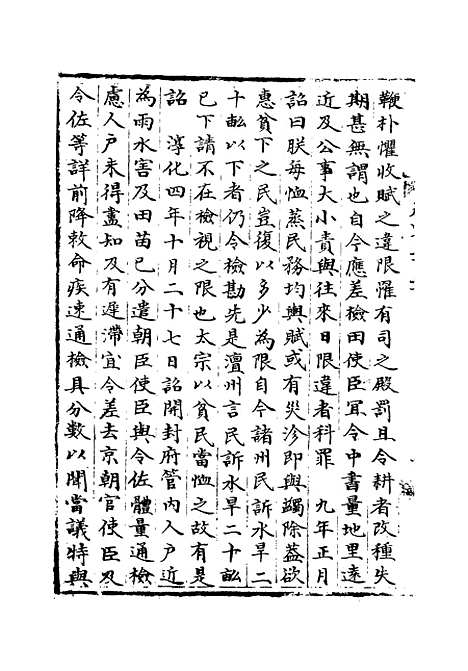 鞭朴懼收賦之違限懼有司之殿罰且令耕者改種失
期甚無謂也自今應差檢田使臣冝令中書量地里遠
近及公事大小責與往來日限違者科罪　九年正月
詔曰朕每恤蒸民務均輿賦或有災沴即與蠲除蓋欲
惠貧下之民豈復以多少為限自今諸州民訴水旱二
十畝以下者仍令檢勘先是澶州言民訴水旱二十畝
已下請不在檢視之限也太宗以貧民當恤之故有是
詔　淳化四年十月二十七日詔開封府管內人戶近
為雨水害及田苗已分遣朝臣使臣與令佐體量通檢
慮人戶未得盡知及有遲滯宜令差去京朝官使臣及
令佐等詳前降敕命疾速通檢具分數以聞當議特與